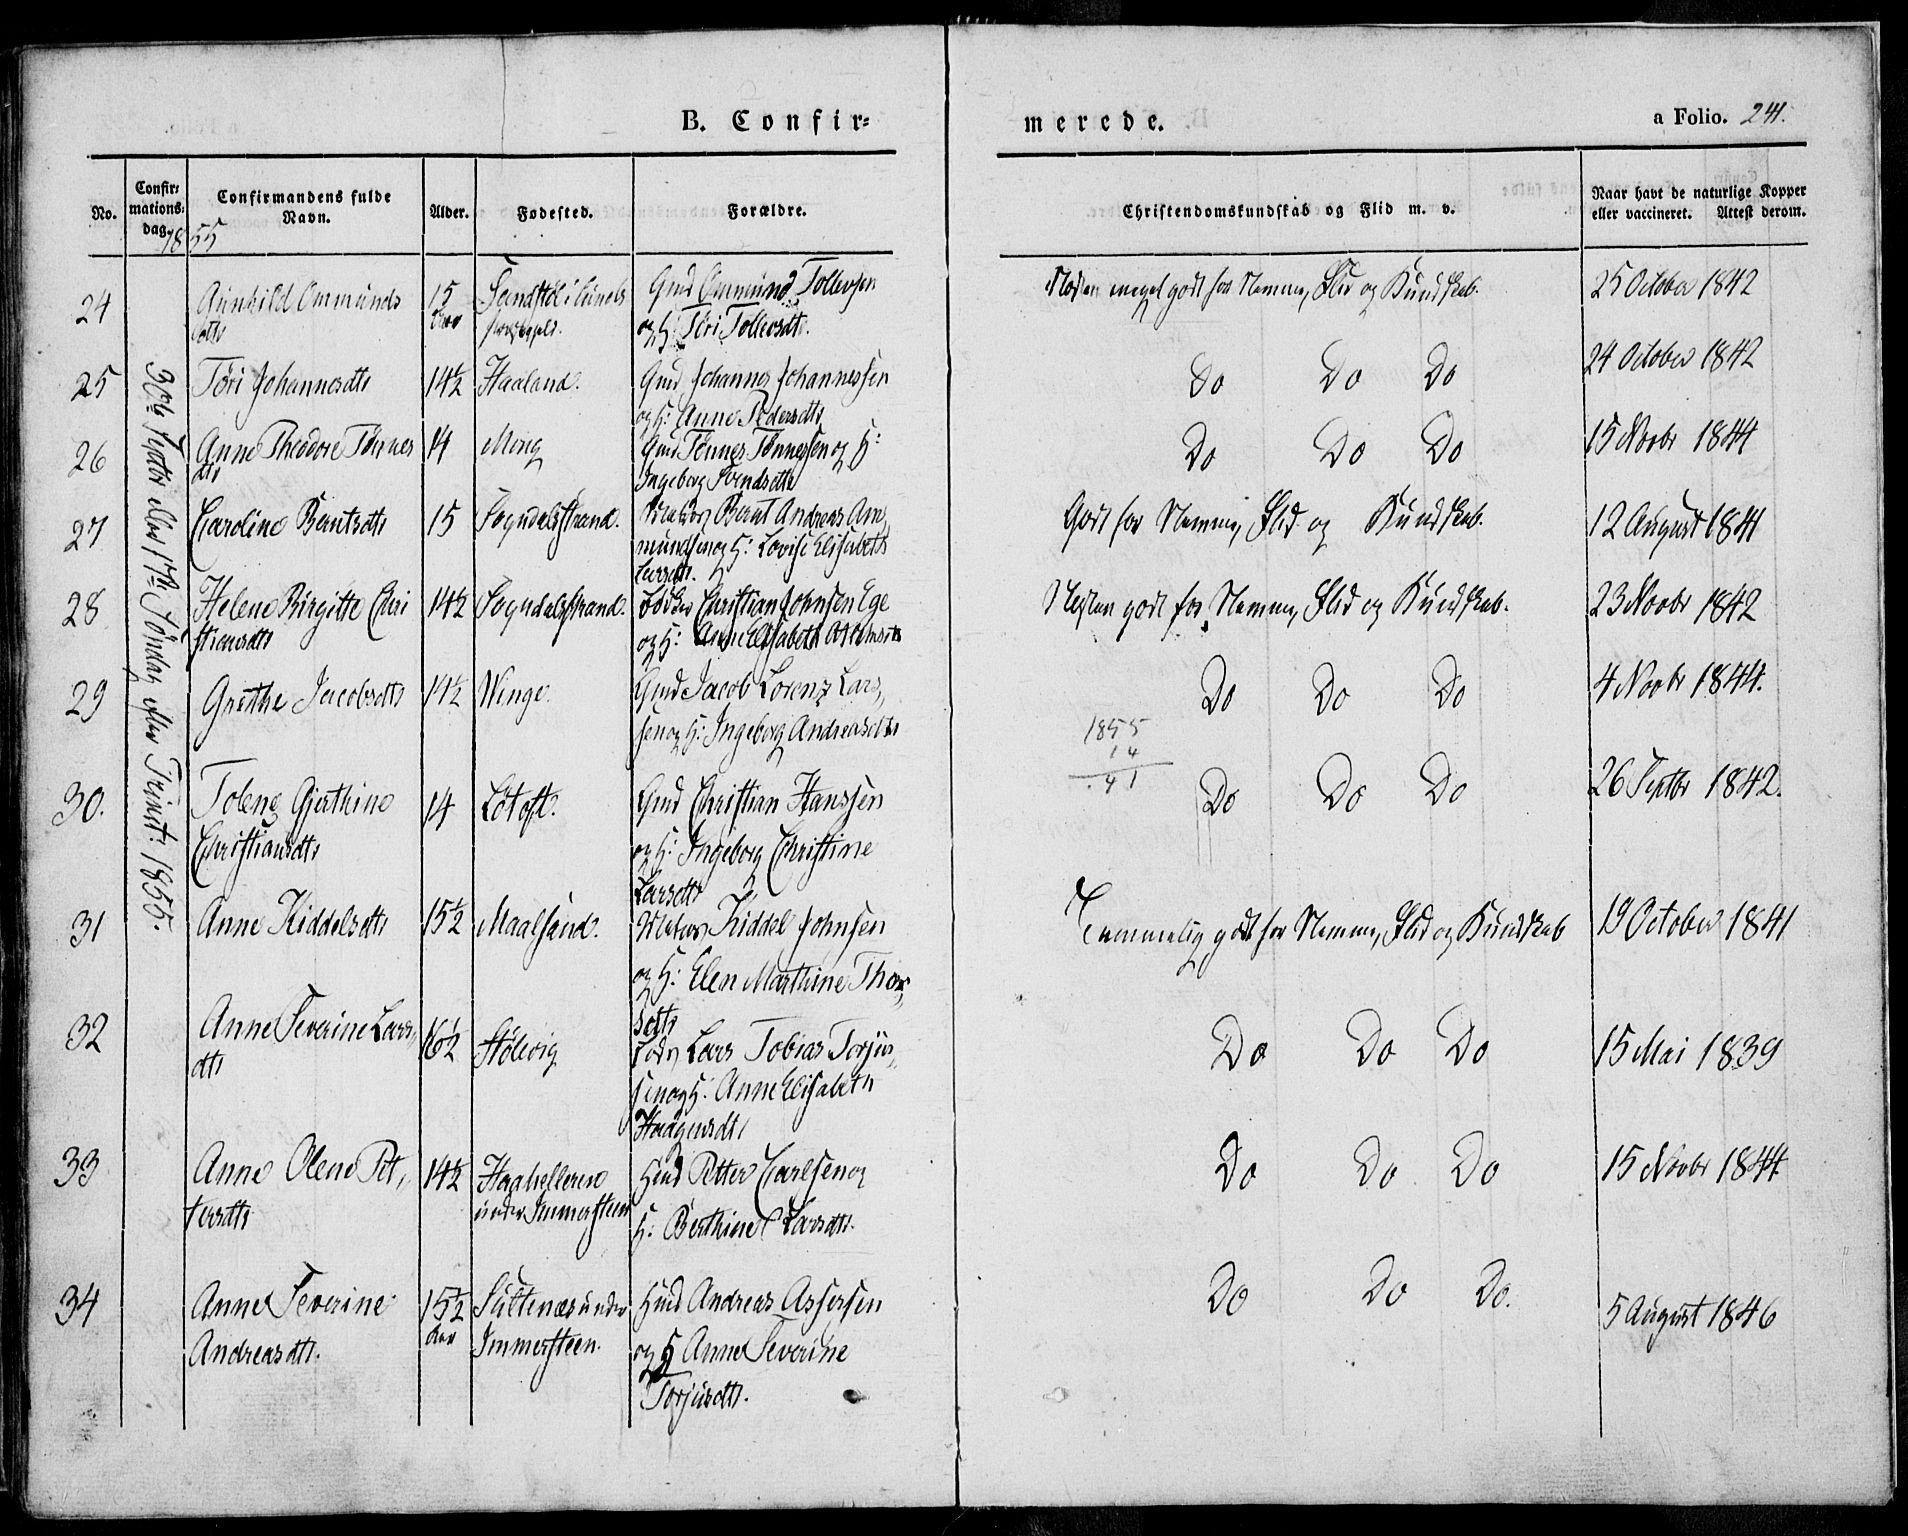 B. Confir=
merede.
a Folio. 241.
No.
Confir=
mations=
dag.
1855
Confirmandens fulde
Navn.
Alder.
Fødested.
Forældre.
Christendomskundskab og Flid m. v.
Naar havt de naturlige Kopper
eller vaccineret. Attest derom.
30te Septbr eller 17de Søndag efter Trinit: 1855.
24
Gunhild Ommunds
dtr
15
Aar
Gmd Ommund Tollevsen
og H: Tøri Tollevsdtr.
Næsten meget godt for Nemme, Flid og Kundskab.
25 October 1842
25
Tøri Johannesdtr
14½
Haaland.
Gmd Johannes Johannessen
og H: Anne Pedersdtr
Do Do Do
24 October 1842
26
Anne Theodore Tønnes
dtr
14
Gmd Tønnes Tønnessen og H:
Ingeborg Svendsdtr
Do Do Do
15 Novbr 1844
27
Caroline Berntsdtr
15
Sogndalsstrand.
Bernt Andreas Am,,
mundsen og H: Lovise Elisabeth
Larsdtr.
Godt for Nemme, Flid og Kundskab.
12 August 1841
28
Helene Birgitte Chri
stiansdtr
14½
Sogndalsstrand.
Christian Johnsen Ege
og H: Anne Elisabeth
Næsten godt for Nemme, Flid og Kundskab.
23 Novbr 1842
29
Grethe Jacobsdtr
14½
Winge.
Gmd Jacob Lorenz Lars,,
sen og H: Ingeborg Andreasdtr
Do Do Do
4 Novbr 1844.
1855
14
41
30.
Tolene Gjerthine
Christiansdtr
14
Løtoft.
Gmd Christian Hanssen
og H: Ingeborg Christine
Larsdtr
Do Do Do
26 Septbr 1842.
31
Anne Kiddelsdtr
15½
Maalsund.
Kiddel Johnsen
og H: Elen Marthine Thors,,
dtr
Temmelig godt for Nemme, Flid og Kundskab
19 October 1841
32
Anne Severine Lars,,
dtr
16½
Stølevig
Lars Tobias Torjus,,
sen og H: Anne Elisabeth
Haagensdtr
Do Do Do
15 Mai 1839
33
Anne Olene Pet,,
tersdtr
14½
Haahelleren
under Immersteen
Hmd Petter Carlsen og
H: Berthine Larsdtr.
Do Do Do
15 Novbr 1844
34
Anne Severine
Andreasdtr.
15½
Aar
Sættenæs under
Immersteen.
Hmd Andreas Assersen
og H Anne Severine
Torjusdtr.
Do Do Do.
5 August 1846